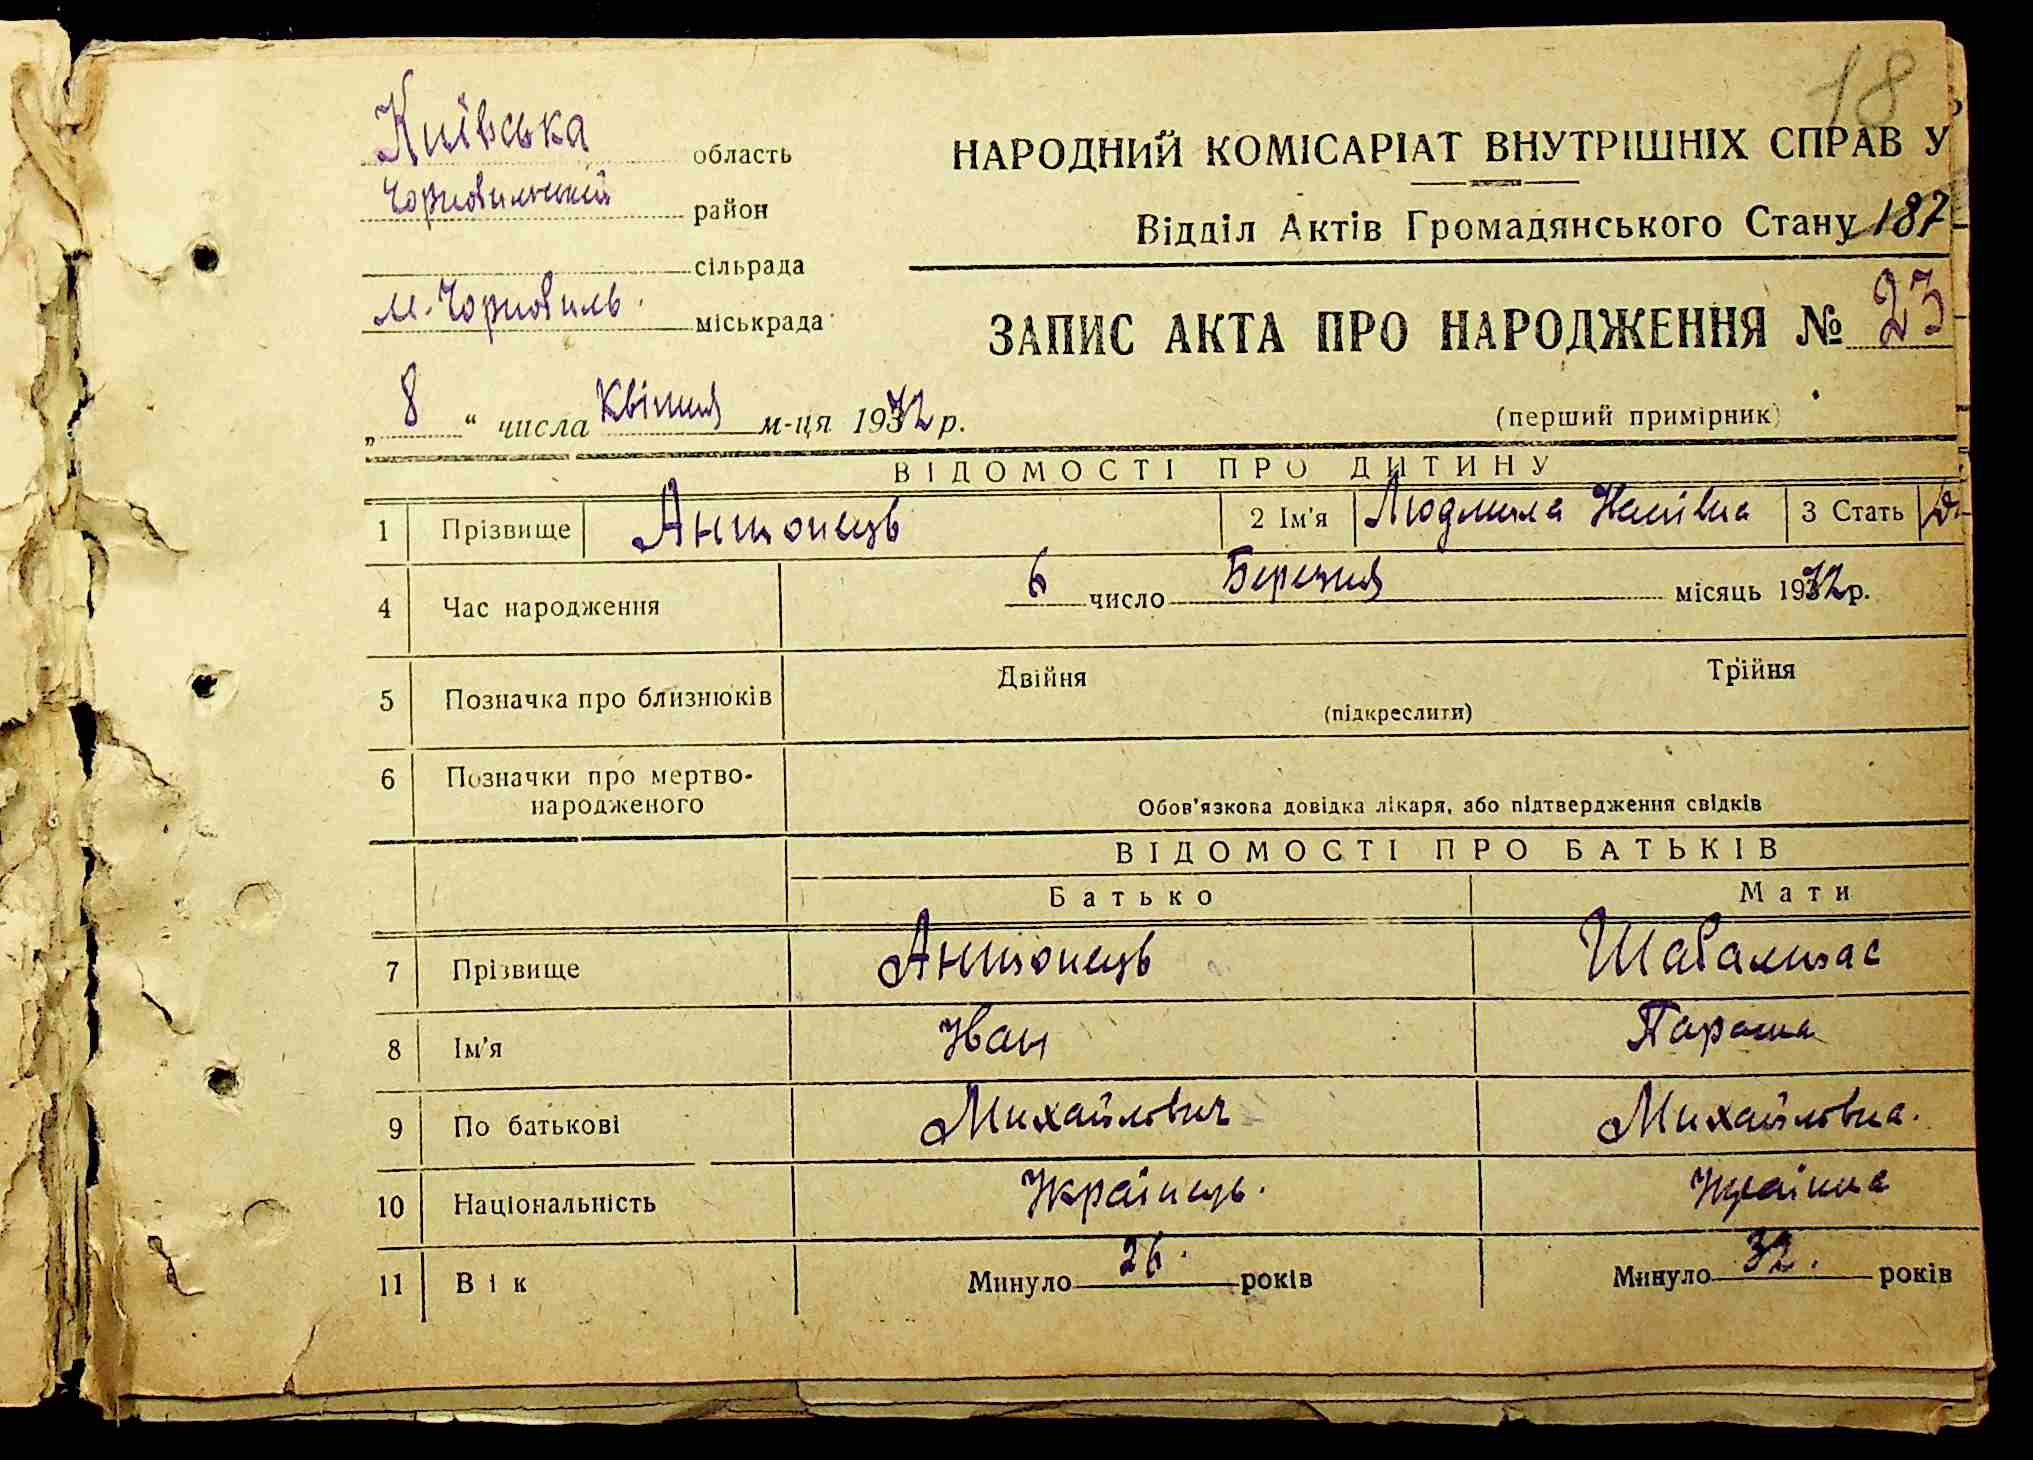 18
Київська область
НАРОДНИЙ КОМІСАРІАТ ВНУТРІШНІХ СПРАВ У
Чорнобильський район
Відділ Актів Громадянського Стану 187
сільрада
м. Чорнобиль міськрада
ЗАПИС АКТА ПРО НАРОДЖЕННЯ № 23
„8“ числа Квітня м-ця 1942 р.
(перший примірник)
ВІДОМОСТІ ПРО ДИТИНУ
1 Прізвище Антонець 2 Ім'я Людмила 3 Стать
4 Час народження 6 число Березня місяць 1942 р.
5 Позначка про близнюків Двійня Трійня
(підкреслити)
6 Позначки про мертво-
народженого
Обов'язкова довідка лікаря, або підтвердження свідків
ВІДОМОСТІ ПРО БАТЬКІВ
Батько Мати
7 Прізвище Антонець Шабалтас
8 Ім'я Іван Параска
9 По батькові Михайлович Михайловна.
10 Національність Українець. Українка
11 Вік Минуло 26. років Минуло 32. років